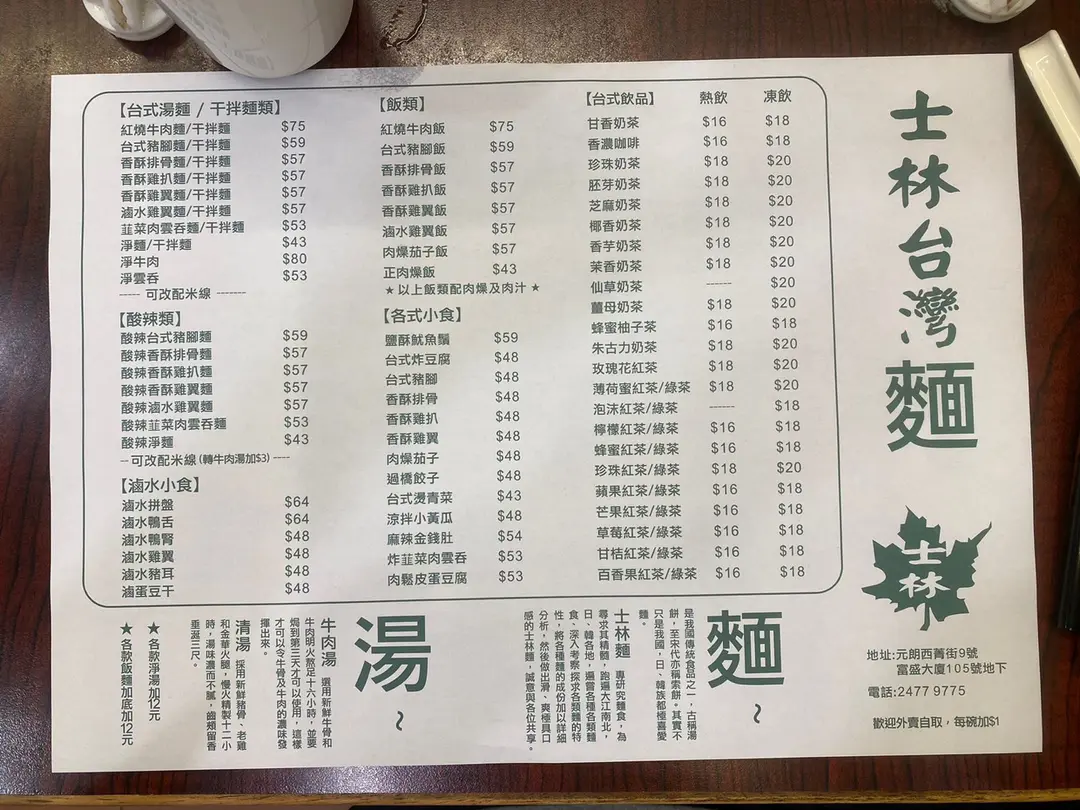 【台式湯麵 / 干拌麵類】
紅燒牛肉麵/干拌麵 $75
台式豬腳麵/干拌麵 $59
香酥排骨麵/干拌麵 $57
香酥雞扒麵/干拌麵 $57
香酥雞翼麵/干拌麵 $57
滷水雞翼麵/干拌麵 $57
韮菜肉雲吞麵/干拌麵 $53
淨麵/干拌麵 $43
淨牛肉 $80
淨雲吞 $53
----- 可改配米線 -------
【酸辣類】
酸辣台式豬腳麵 $59
酸辣香酥排骨麵 $57
酸辣香酥雞扒麵 $57
酸辣香酥雞翼麵 $57
酸辣滷水雞翼麵 $57
酸辣韮菜肉雲吞麵 $53
酸辣淨麵 $43
-- 可改配米線 (轉牛肉湯加$3) ----
【滷水小食】
滷水拼盤 $64
滷水鴨舌 $64
滷水鴨腎 $48
滷水雞翼 $48
滷水豬耳 $48
滷蛋豆干 $48
【飯類】
紅燒牛肉飯 $75
台式豬腳飯 $59
香酥排骨飯 $57
香酥雞扒飯 $57
香酥雞翼飯 $57
滷水雞翼飯 $57
肉燥茄子飯 $57
正肉燥飯 $43
★以上飯類配肉燥及肉汁★
【各式小食】
鹽酥魷魚鬚 $59
台式炸豆腐 $48
台式豬腳 $48
香酥排骨 $48
香酥雞扒 $48
香酥雞翼 $48
肉燥茄子 $48
過橋餃子 $48
台式燙青菜 $43
涼拌小黃瓜 $48
麻辣金錢肚 $54
炸韮菜肉雲吞 $53
肉鬆皮蛋豆腐 $53
【台式飲品】 熱飲 凍飲
甘香奶茶 $16 $18
香濃咖啡 $16 $18
珍珠奶茶 $18 $20
胚芽奶茶 $18 $20
芝麻奶茶 $18 $20
椰香奶茶 $18 $20
香芋奶茶 $18 $20
茉香奶茶 $18 $20
仙草奶茶 ------ $20
薑母奶茶 $18 $20
蜂蜜柚子茶 $16 $18
朱古力奶茶 $18 $20
玫瑰花紅茶 $18 $20
薄荷蜜紅茶/綠茶 $18 $20
泡沫紅茶/綠茶 ------ $18
檸檬紅茶/綠茶 $16 $18
蜂蜜紅茶/綠茶 $16 $18
珍珠紅茶/綠茶 $18 $20
蘋果紅茶/綠茶 $16 $18
芒果紅茶/綠茶 $16 $18
草莓紅茶/綠茶 $16 $18
甘桔紅茶/綠茶 $16 $18
百香果紅茶/綠茶 $16 $18
士林台灣麵
士林
地址:元朗西菁街9號
富盛大廈105號地下
電話:2477 9775
歡迎外賣自取，每碗加$1
麵~
是我國傳統食品之一，古稱湯
餅，至宋代亦稱索餅。其實不
只是我國，日、韓族都極喜愛
麵。
士林麵 專研究麵食，為
尋求其精髓，跑遍大江南北，
日、韓各地，遍嘗各種各類麵
食、深入考察探求各類麵的特
性，將各種麵的成份加以詳細
分析，然後做出滑、爽極具口
感的士林麵，誠意與各位共享。
湯~
牛肉湯 選用新鮮牛骨和
牛肉明火熬足十六小時，並要
焗到第三天才可以使用，這樣
才可以令牛骨及牛肉的濃味發
揮出來。
清湯 採用新鮮豬骨、老雞
和金華火腿，慢火精製十二小
時，湯味濃而不膩，齒頰留香
垂涎三尺。
★ 各款淨湯加12元
★ 各款飯麵加底加12元